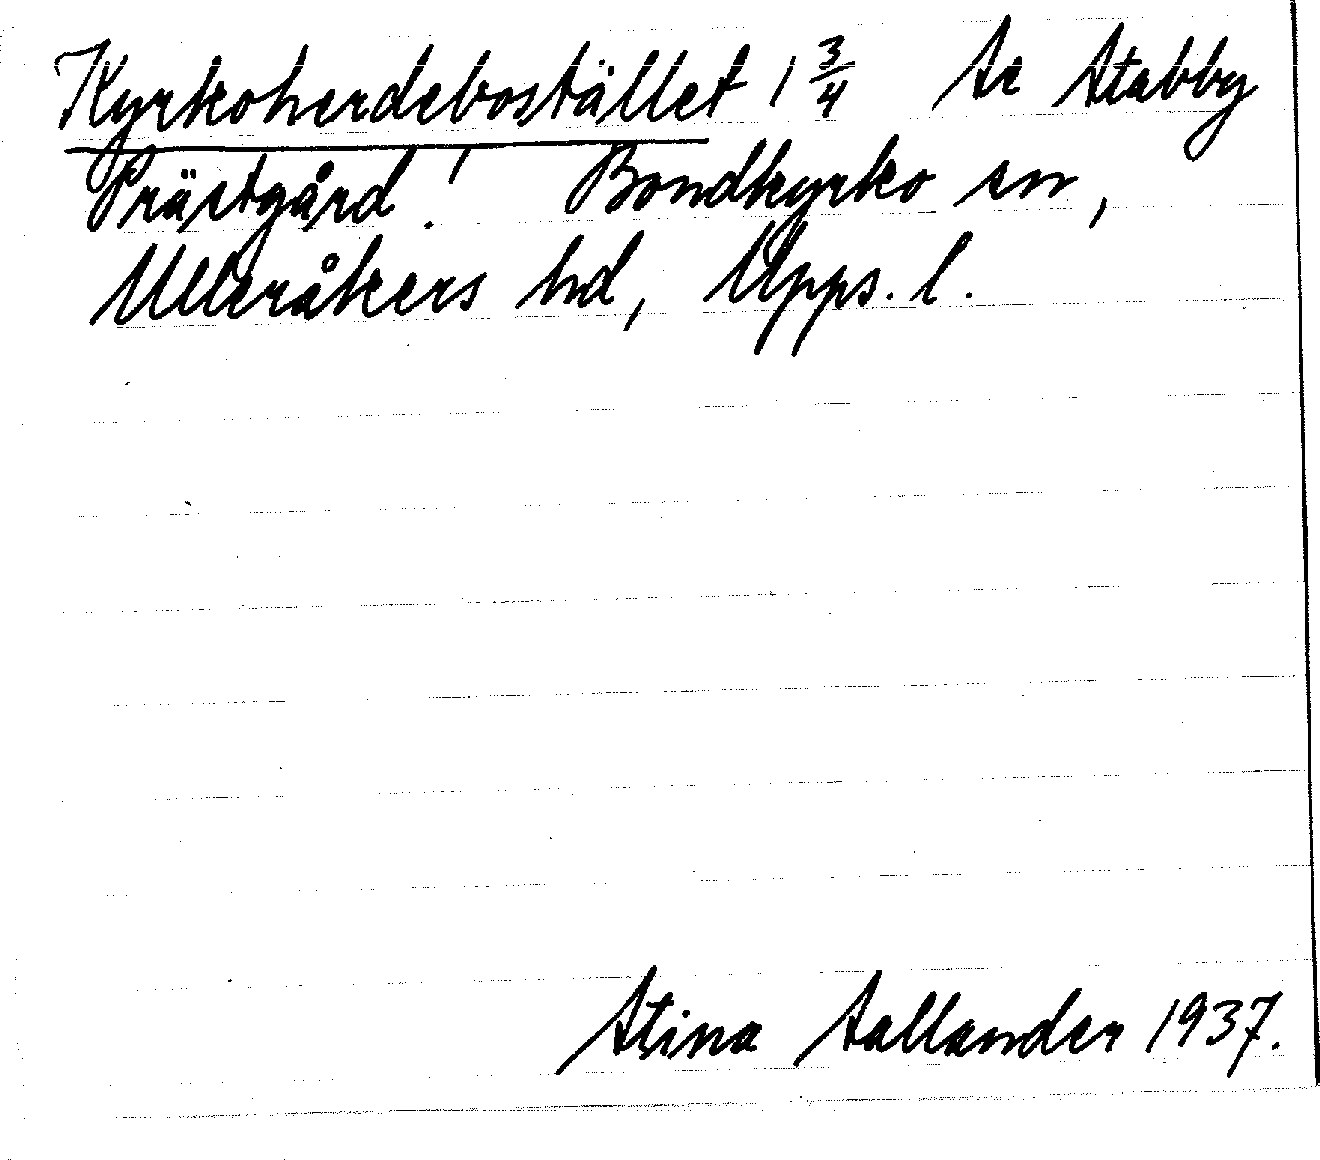 Kyrkoherdebostället 1 3/4 Se Stabby
Prästgård! Bondkyrko sn,
Ulleråkers hd, Upps. l.
Stina Sallander 1937.